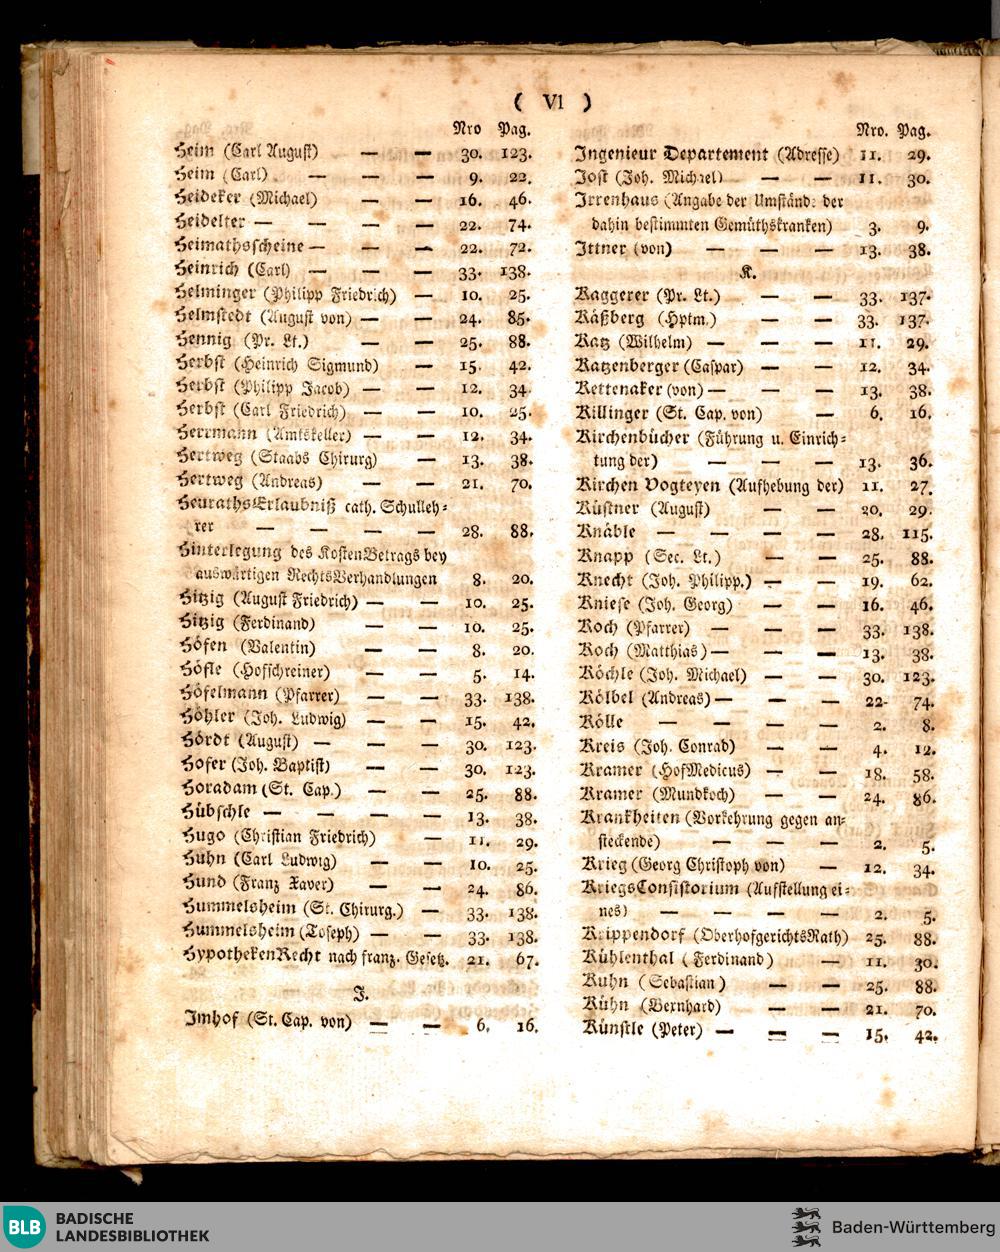 ( VI )
Nro Pag.
Heim (Carl August) — — 30. 123.
Heim (Carl) — — — 9. 22.
Heideker (Michael) — — 16. 46.
Heidelter — — — — 22. 74.
Heimathsscheine — — — 22. 72.
Heinrich (Carl) — — — 33. 138.
Helminger (Philipp Friedrich) — 10. 25.
Helmstedt (August von) — — 24. 85.
Hennig (Pr. Lt.) — — 25. 88.
Herbst (Heinrich Sigmund) — 15. 42.
Herbst (Philipp Jacob) — — 12. 34.
Herbst (Carl Friedrich) — — 10. 25.
Herrmann (Amtskeller) — — 12. 34.
Hertweg (Staabs Chirurg) — 13. 38.
Hertweg (Andreas) — — 21. 70.
HeurathsErlaubniß cath. Schulleh-
rer — — — — 28. 88.
Hinterlegung des KostenBetrags bey
auswärtigen RechtsVerhandlungen 8. 20.
Hitzig (August Friedrich) — — 10. 25.
Hitzig (Ferdinand) — — 10. 25.
Höfen (Valentin) — — 8. 20.
Höfle (Hofschreiner) — — 5. 14.
Höfelmann (Pfarrer) — — 33. 138.
Höhler (Joh. Ludwig) — — 15. 42.
Hördt (August) — — — 30. 123.
Hofer (Joh. Baptist) — — 30. 123.
Horadam (St. Cap.) — — 25. 88.
Hübschle — — — — 13. 38.
Hugo (Christian Friedrich) — 11. 29.
Huhn (Carl Ludwig) — — 10. 25.
Hund (Franz Xaver) — — 24. 86.
Hummelsheim (St. Chirurg.) — 33. 138.
Hummelsheim (Joseph) — — 33. 138.
HypothekenRecht nach franz. Gesetz. 21. 67.
J.
Imhof (St. Cap. von) — — 6. 16.
Nro. Pag.
Ingenieur Departement (Adresse) 11. 29.
Jost (Joh. Michael) — — 11. 30.
Irrenhaus (Angabe der Umstände der
dahin bestimmten Gemüthskranken) 3. 9.
Ittner (von) — — — 13. 38.
K.
Kaggerer (Pr. Lt.) — — 33. 137.
Käßberg (Hptm.) — — 33. 137.
Katz (Wilhelm) — — — 11. 29.
Katzenberger (Caspar) — — 12. 34.
Kettenaker (von) — — — 13. 38.
Killinger (St. Cap. von) — 6. 16.
Kirchenbücher (Führung u. Einrich-
tung der) — — — 13. 36.
Kirchen Vogteyen (Aufhebung der) 11. 27.
Küstner (August) — — 20. 29.
Knäble — — — — 28. 115.
Knapp (Sec. Lt.) — — 25. 88.
Knecht (Joh. Philipp.) — — 19. 62.
Kniese (Joh. Georg) — — 16. 46.
Koch (Pfarrer) — — — 33. 138.
Koch (Matthias) — — — 13. 38.
Köchle (Joh. Michael) — — 30. 123.
Kölbel (Andreas) — — — 22- 74.
Kölle — — — — 2. 8.
Kreis (Joh. Conrad) — — 4. 12.
Kramer (HofMedicus) — — 18. 58.
Kramer (Mundkoch) — — 24. 86.
Krankheiten (Vorkehrung gegen an-
steckende) — — — 2. 5.
Krieg (Georg Christoph von) — 12. 34.
KriegsConsistorium (Aufstellung ei-
nes) — — — — 2. 5.
Krippendorf (OberhofgerichtsRath) 25. 88.
Kühlenthal (Ferdinand) — 11. 30.
Kuhn (Sebastian) — — 25. 88.
Kühn (Bernhard) — — 21. 70.
Künstle (Peter) — — — 15. 42.
BLB BADISCHE
LANDESBIBLIOTHEK
Baden-Württemberg